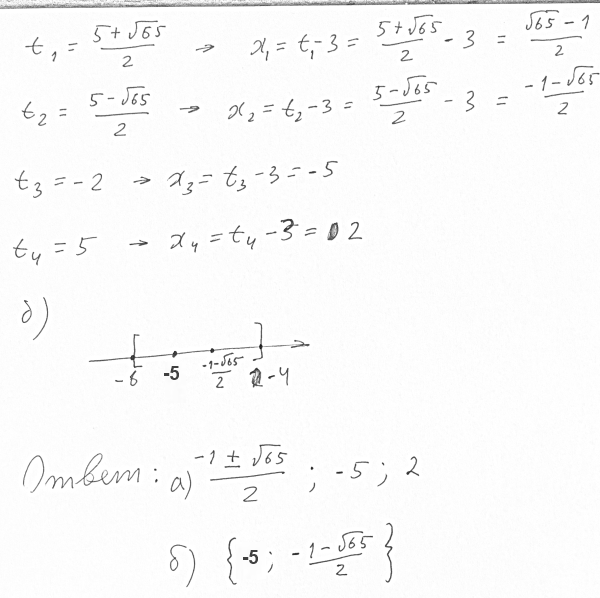 t₁ = (5+√65)/2 → x₁ = t₁-3 = (5+√65)/2 - 3 = (√65-1)/2
t₂ = (5-√65)/2 → x₂ = t₂-3 = (5-√65)/2 - 3 = (-1-√65)/2
t₃ = -2 → x₃ = t₃-3 = -5
t₄ = 5 → x₄ = t₄-3 = 2
б)
-6 -5 (-1-√65)/2 -4
Ответ: а) (-1±√65)/2 ; -5 ; 2
б) {-5 ; -(1-√65)/2}